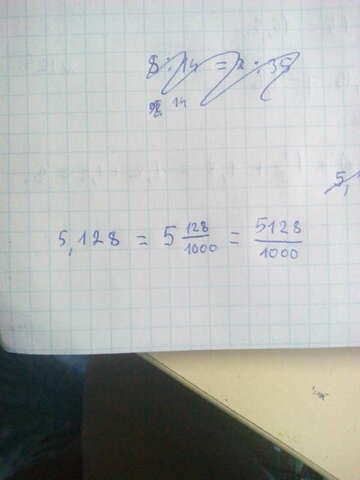 8 : 14 = x : 35
14
5,
5,128 = 5 128/1000 = 5128/1000